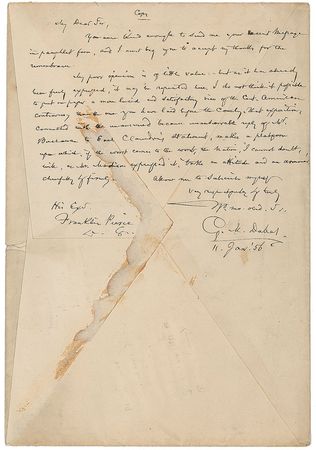 Copy
My Dear Sir,
You were kind enough to send me your recent Message
in pamphlet form, and I must beg you to accept my thanks for the
remembrance.
My poor opinion is of little value - but as it has already
been freely expressed, it may be repeated here. I do not think it possible
to put on paper a more lucid and satisfactory view of the Cent. American
controversy than the one you have laid before the Country. That exposition,
connected with the unanswered because unanswerable reply of Mr.
Buchanan to Earl Clarendon's statement, makes a platform
upon which, if the worst comes to the worst, the Nation, I cannot doubt,
will, as
Madison expressed it, take an attitude and an armour
cheerfully & firmly
Allow me to subscribe myself
Very respectfully & truly
Yr. mo. obd. St.
His Excy.
Franklin Pierce
G. M. Dallas
11. Jan '56